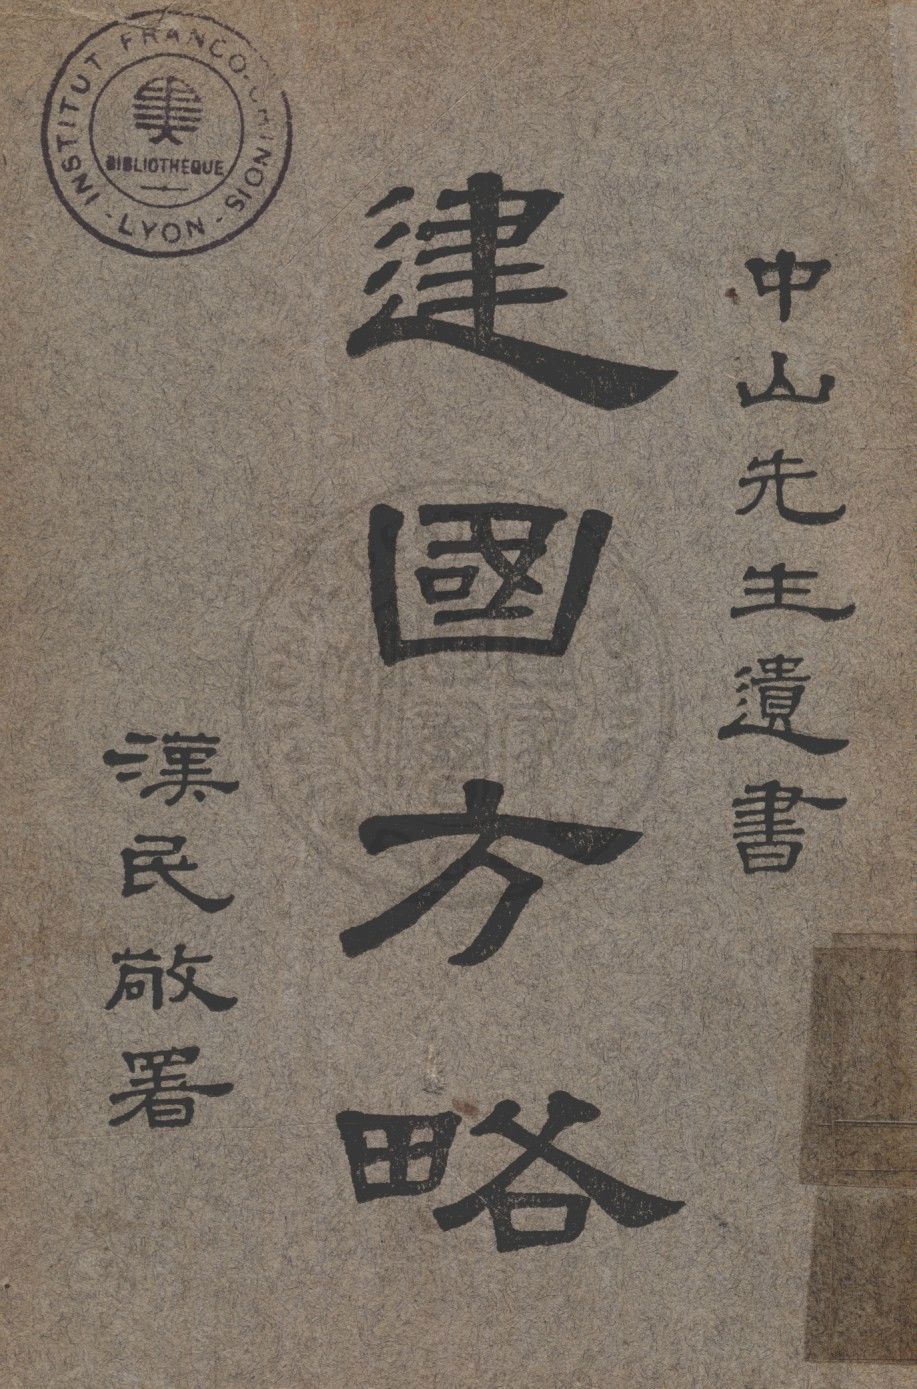 中山先生遺書
建國方略
漢民敬署
INSTITUT FRANCO-CHINOIS
BIBLIOTHÈQUE
- LYON -